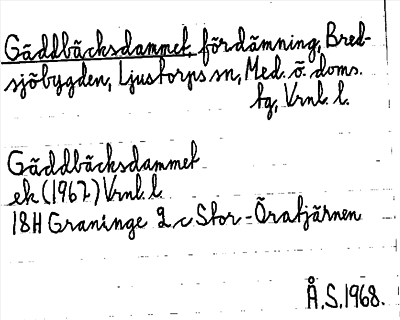 Gäddbäcksdammet, fördämning, Bred-
sjöbygden, Ljustorps sn, Med. ö. doms.
tg, Vrnl. l.
Gäddbäcksdammet
ek (1967) Vrnl. l.
18H Graninge 2 c Stor-Öratjärnen
Å.S.1968.